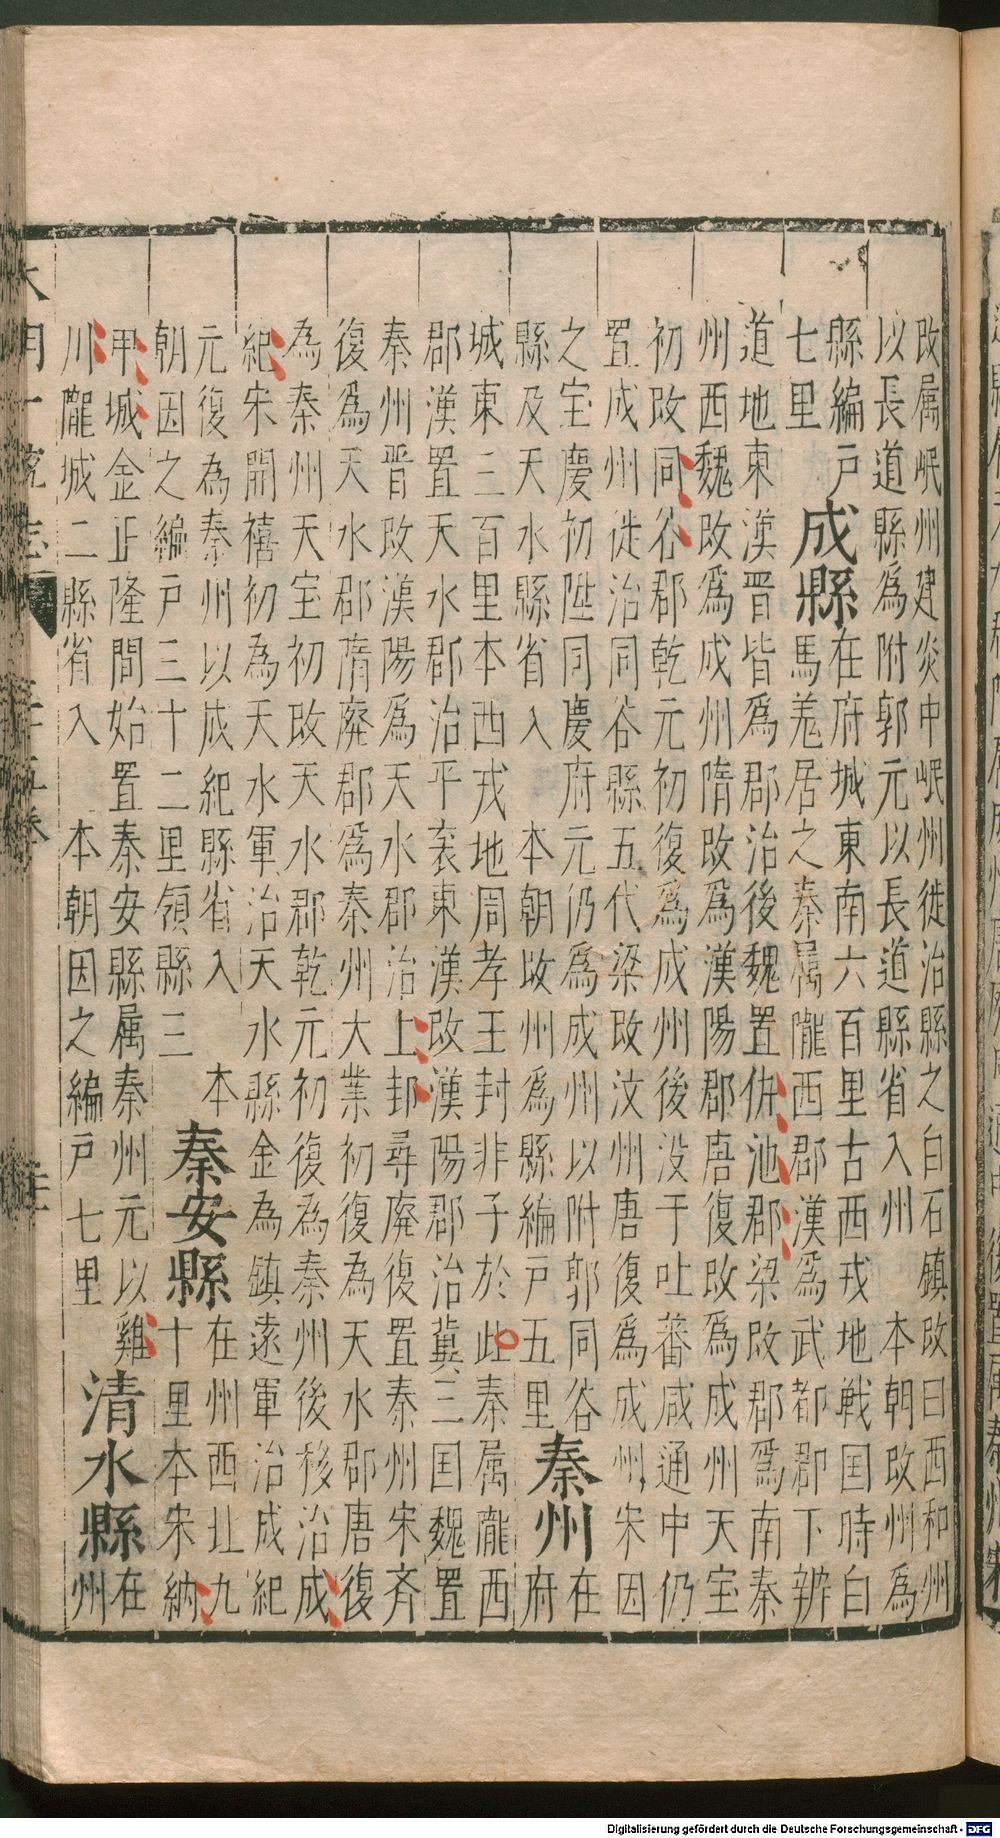 改属岷州建炎中岷州徙治縣之白石鎮改曰西和州
以長道縣爲附郭元以長道縣省入州 本朝改州爲
縣編户
七里
成縣
在府城東南六百里古西戎地戰国時白
馬羌居之秦属隴西郡漢爲武都郡下辨
道地東漢晋皆爲郡治後魏置仇池郡梁改郡爲南秦
州西魏改爲成州隋改爲漢陽郡唐復改爲成州天宝
初改同谷郡乾元初復爲成州後没于吐蕃咸通中仍
置成州徙治同谷縣五代梁改汶州唐復爲成州宋因
之宝慶初陞同慶府元仍爲成州以附郭同谷
縣及天水縣省入 本朝改州爲縣編户五里
秦州
在
府
城東三百里本西戎地周孝王封非子於此秦属隴西
郡漢置天水郡治平襄東漢改漢陽郡治冀三国魏置
秦州晋改漢陽爲天水郡治上邽尋廃復置秦州宋齐
復爲天水郡隋廢郡爲秦州大業初復為天水郡唐復
為秦州天宝初改天水郡乾元初復為秦州後移治成
紀宋開禧初為天水軍治天水縣金為鎮遠軍治成紀
元復為秦州以成紀縣省入 本
朝因之編户三十二里領縣三
秦安縣
在州西北九
十里本宋納
甲城金正隆間始置秦安縣属秦州元以雞
川隴城二縣省入 本朝因之編户七里
清水縣
在
州
大明一統志 卷
Digitalisierung gefördert durch die Deutsche Forschungsgemeinschaft - DFG